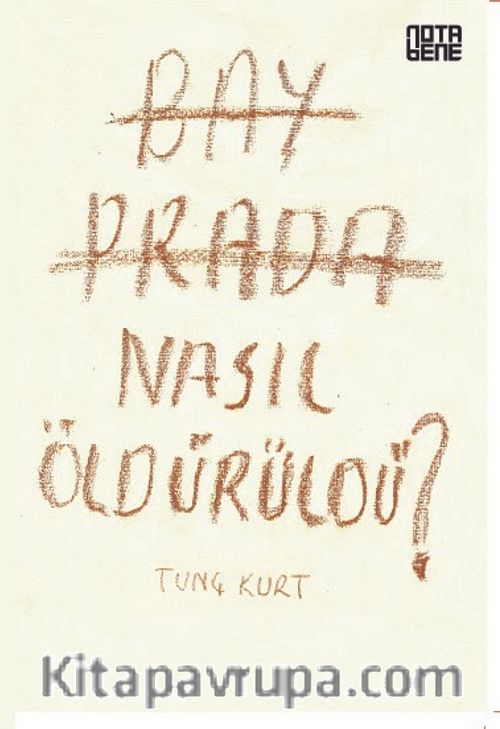 NOTA
BENE
BAY
PRADA
NASIL
ÖLDÜRÜLDÜ?
TUNÇ KURT
Kitapavrupa.com